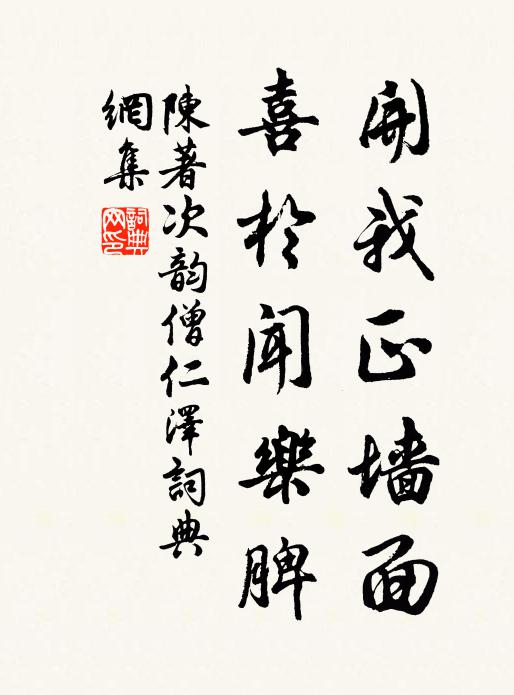 開我正墙面
喜於闻樂脾
陳著次韵僧仁澤詞典
網集
詞典网印